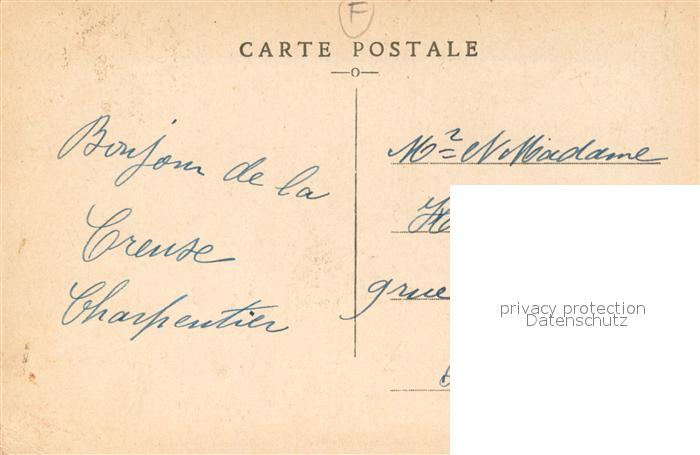 F
CARTE POSTALE
Bonjour de la
Creuse
Charpentier
Mr & Madame
grue
privacy protection
Datenschutz